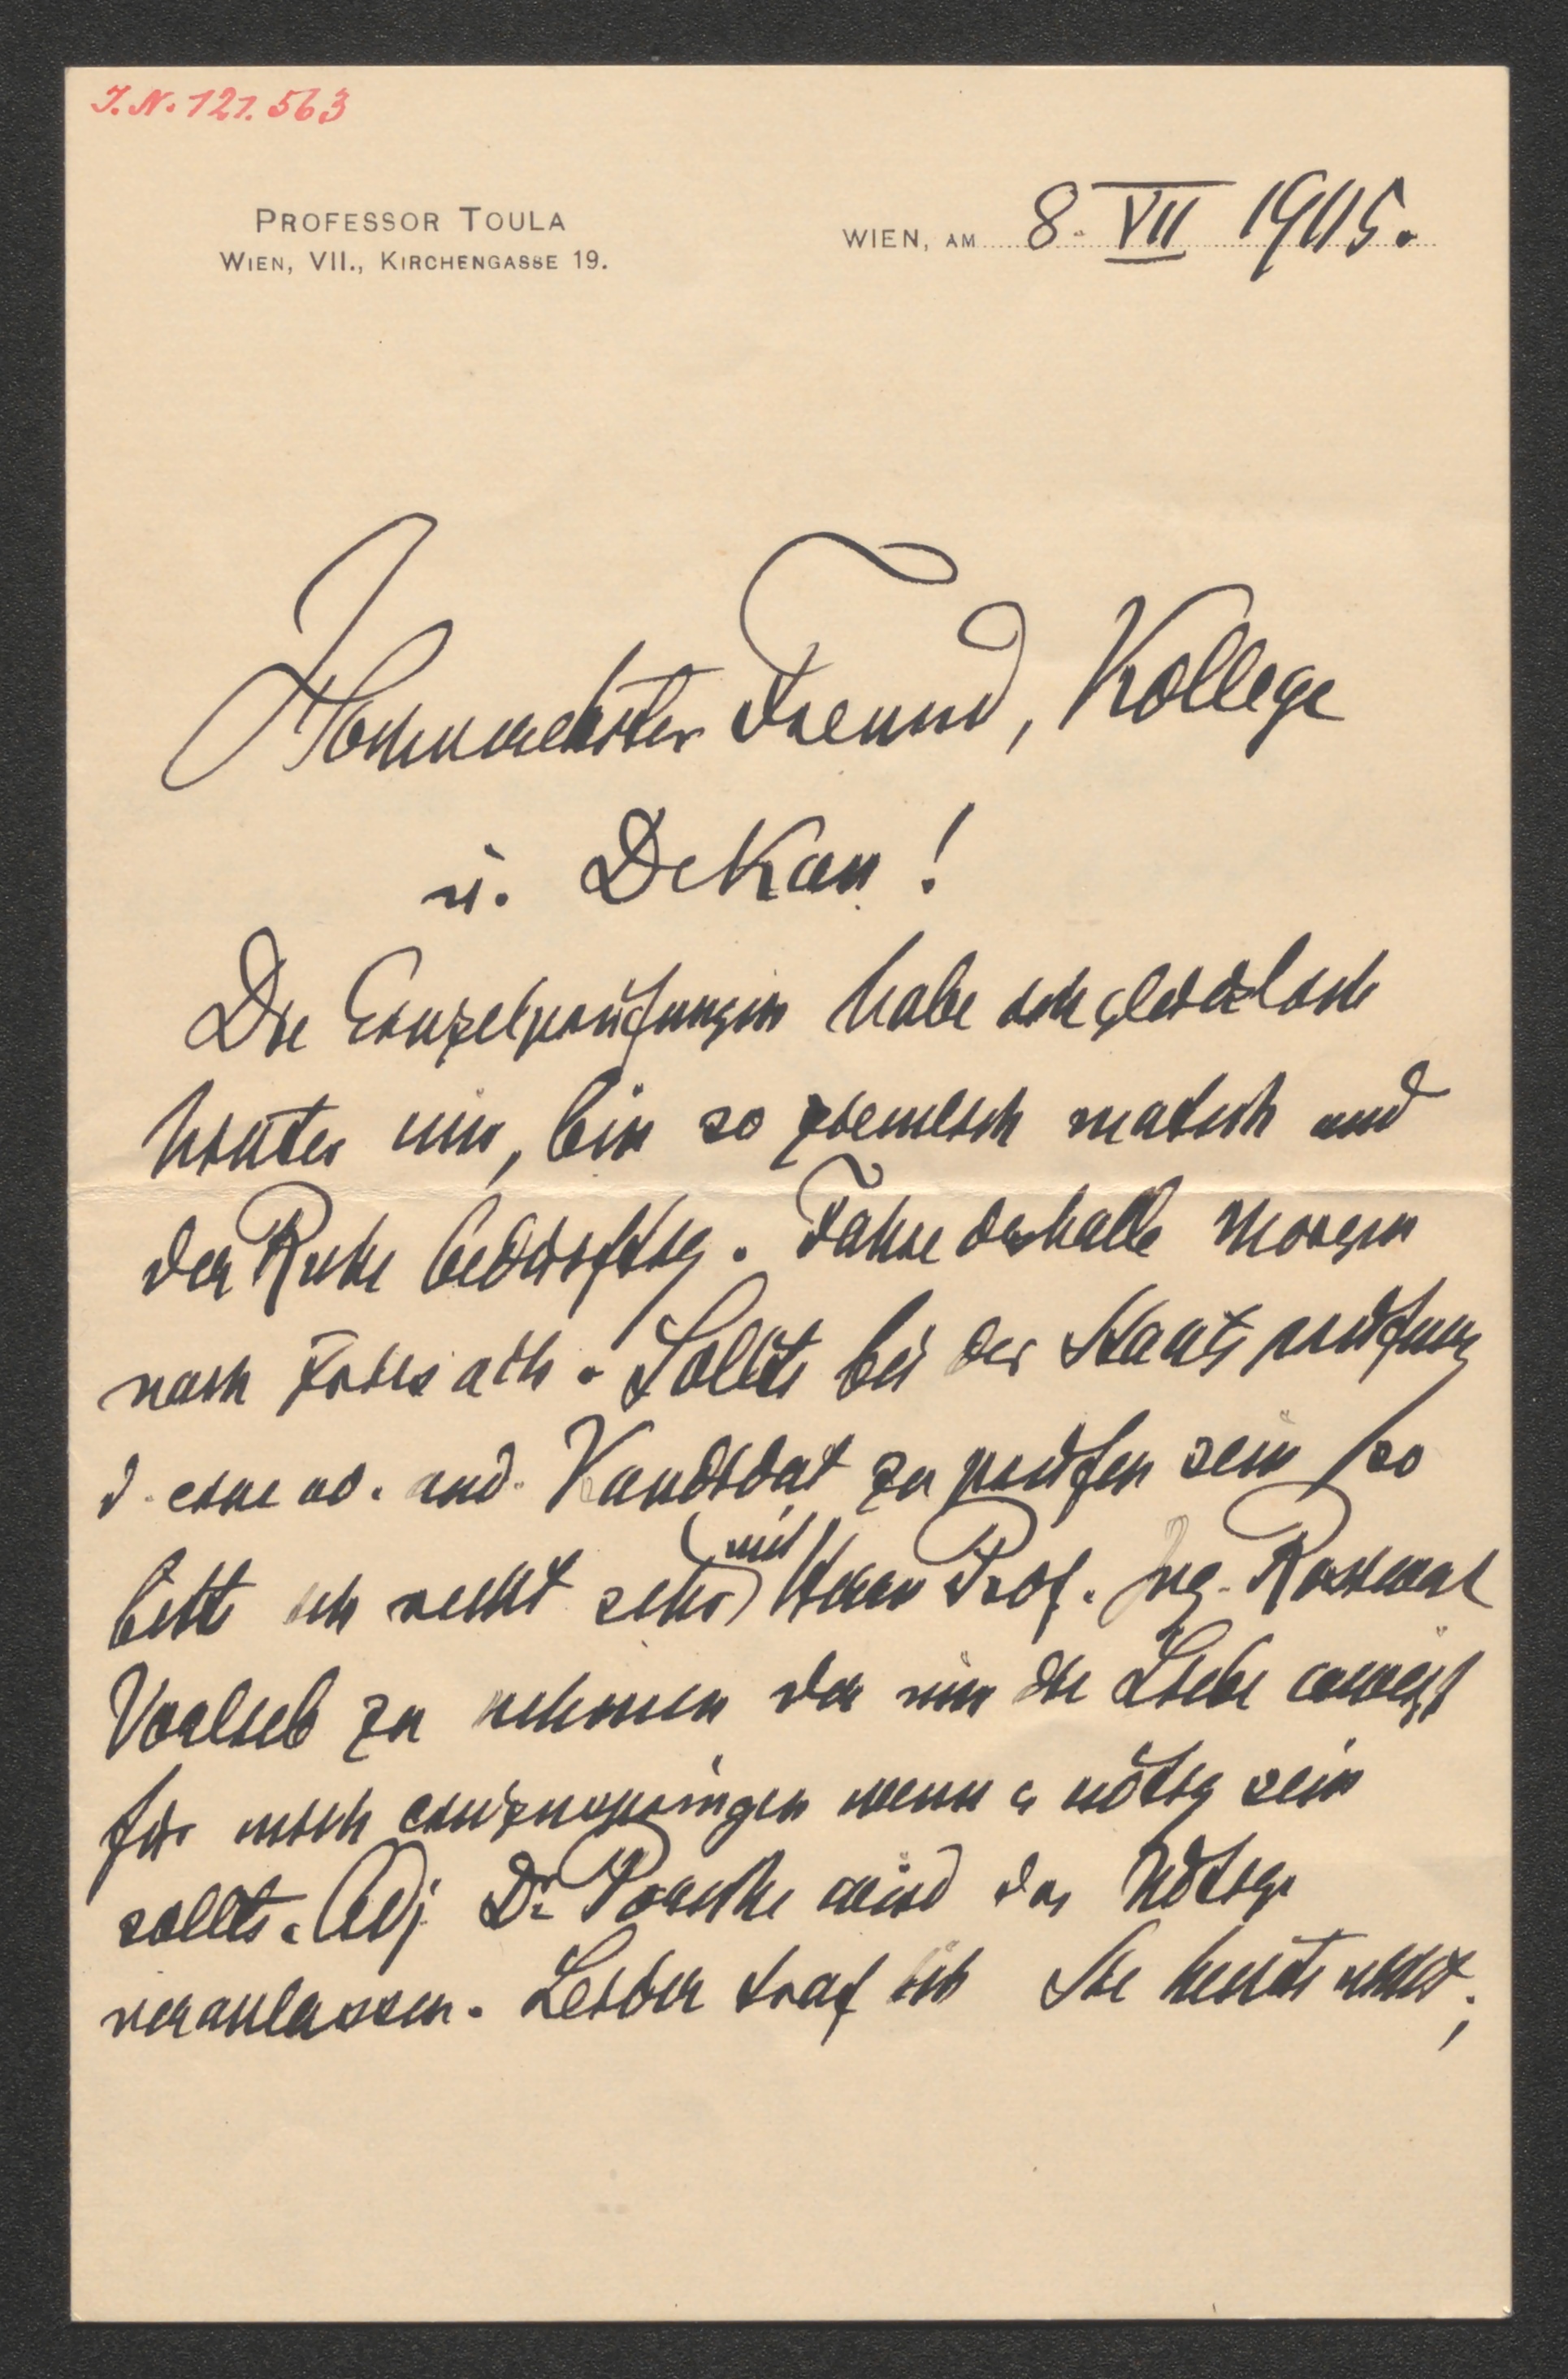 I. N. 121.563
PROFESSOR TOULA
WIEN, VII., KIRCHENGASSE 19.
WIEN, AM 8. VII 1905.
Freund, Kollege
u. Dekan!
Die Einzelprüfungen habe ich glücklich
hinter mir, bin so ziemlich matsch und
der Ruhe bedürftig. Fahre deshalb morgen
nach. Sollte bei der Staatsprüfung
d. eine od. and. Kandidat zu prüfen sein so
bitte ich recht sehr mit Herrn Prof. Ing. Rosiwal
Vorlieb zu nehmen der mir die Liebe erweist
für mich einzuspringen wenn es nötig sein
sollte. Adj. Dr. Porsche wird das Nötige
veranlassen. Leider traf ich Sie heute nicht;